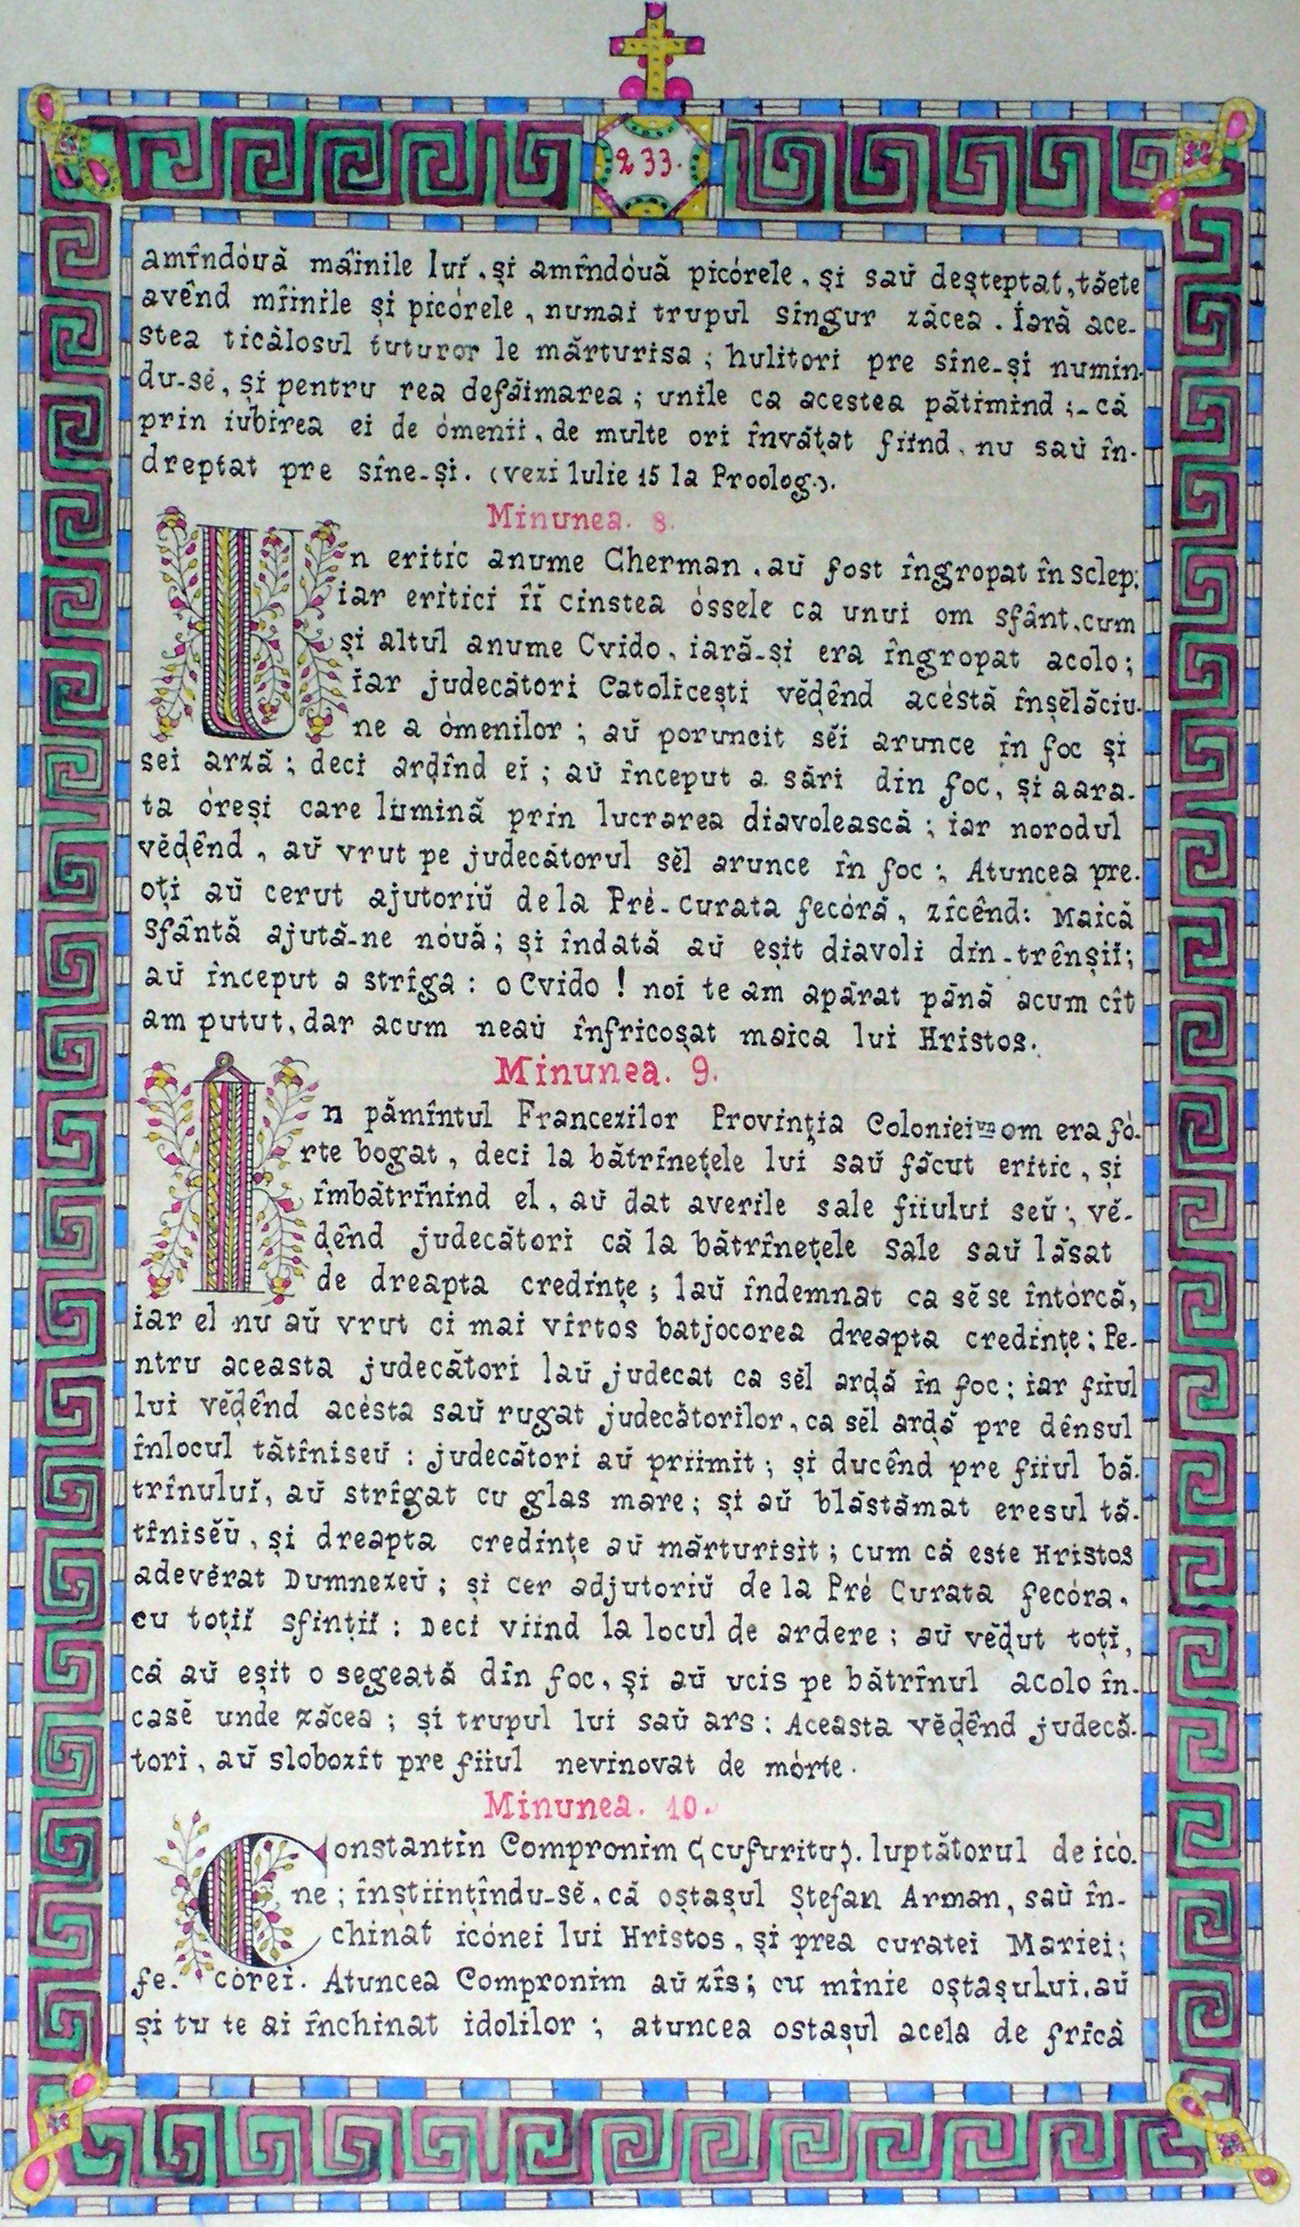 233.
amîndóuă mâinile luĭ, și amîndóuă picórele, și saŭ deșteptat, tăete
avênd mîinile și picórele, numai trupul singur zăcea. Iară ace-
stea ticălosul tuturor le mărturisa; hulitori pre sîne-și numin-
du-sĕ, și pentru rea defăimarea; unile ca acestea pătimind;-că
prin iubirea ei de ómenii, de multe ori învățat fiind, nu saŭ în-
dreptat pre sîne-și. (vezi Iulie 15 la Proolog.).
Minunea. 8.
Un eritic anume Gherman, aŭ fost îngropat în sclep;
iar eritici îĭ cinstea óssele ca unui om sfânt, cum
și altul anume Cvido, iară-și era îngropat acolo;
iar judecători Catolicești vĕḑênd acéstă înșĕlăciu-
ne a ómenilor; aŭ poruncit sĕi arunce în foc și
sei arză; deci arḑînd ei; aŭ început a sări din foc, și a ara-
ta óreși care lumină prin lucrarea diavolească; iar norodul
vĕḑênd, aŭ vrut pe judecătorul sĕl arunce în foc; Atuncea pre-
oți aŭ cerut ajutoriŭ de la Pré-Curata fecóră, zîcênd: Maică
Sfântă ajută-ne nóuă; și îndată aŭ eșit diavoli din-trênșii;
aŭ început a strîga: o Cvido! noi te am apărat pănă acum cît
am putut, dar acum neaŭ înfricoșat maica lui Hristos.
Minunea. 9.
In pămîntul Francezilor Provinția Coloniei un om era fó-
rte bogat, deci la bătrînețele lui saŭ făcut eritic, și
îmbătrînind el, aŭ dat averile sale fiiului seŭ; vĕ-
ḑênd judecători că la bătrînețele sale saŭ lăsat
de dreapta credințe; laŭ îndemnat ca sĕ se întórcă,
iar el nu aŭ vrut ci mai vîrtos batjocorea dreapta credințe; Pe-
ntru aceasta judecători laŭ judecat ca sĕl arḑă în foc; iar fiiul
lui vĕḑênd acésta saŭ rugat judecătorilor, ca sĕl arḑă pre dênsul
înlocul tătîniseŭ: judecători aŭ priimit; și ducênd pre fiiul bă-
trînuluĭ, aŭ strîgat cu glas mare; și aŭ blăstămat eresul tă-
tînisĕŭ, și dreapta credințe aŭ mărturisit; cum că este Hristos
adevĕrat Dumnezeŭ; și cer adjutoriŭ de la Pré Curata fecóra,
cu toțiĭ sfințiĭ: Deci viind la locul de ardere; aŭ vĕḑut toți,
că aŭ eșit o segeată dîn foc, și aŭ ucis pe bătrînul acolo în-
casĕ unde zăcea; și trupul lui saŭ ars: Aceasta vĕḑênd judecă-
tori, aŭ slobozît pre fiiul nevinovat de mórte.
Minunea. 10.
Constantîn Compronim (cufuritu). luptătorul de icó-
ne; înștiințîndu-sĕ, că oștașul Ștefan Arman, saŭ în-
chinat icónei lui Hristos, și prea curatei Mariei;
fe-córei. Atuncea Compronim aŭ zîs; cu mînie oștașului, aŭ
și tu te ai închinat idolilor; atuncea ostașul acela de frîcă